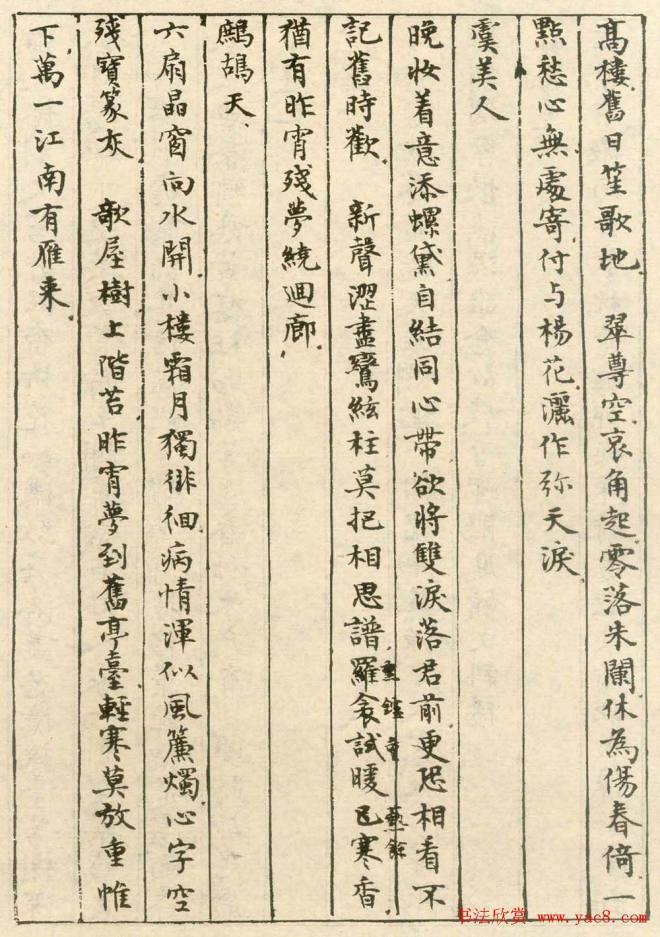 高樓舊日笙歌地 翠尊空哀角起零落朱闌休為傷春倚一
點愁心無處寄付与楊花灑作弥天淚
虞美人
晚妆着意添螺黛自結同心帶欲將雙淚落君前更恐相看不
記舊時歡 新聲澀盡鸞絃柱莫把相思譜羅衾試暖已寒香
重 重 爇餘
猶有昨宵殘夢繞迴廊
鷓鴣天
六扇晶窗向水開小樓霜月獨徘徊病情渾似風簾燭心字空
殘寶篆灰 歌屋樹上階苔昨宵夢到舊亭臺輕寒莫放重帷
下萬一江南有雁来
书法欣赏 www.yac8.com